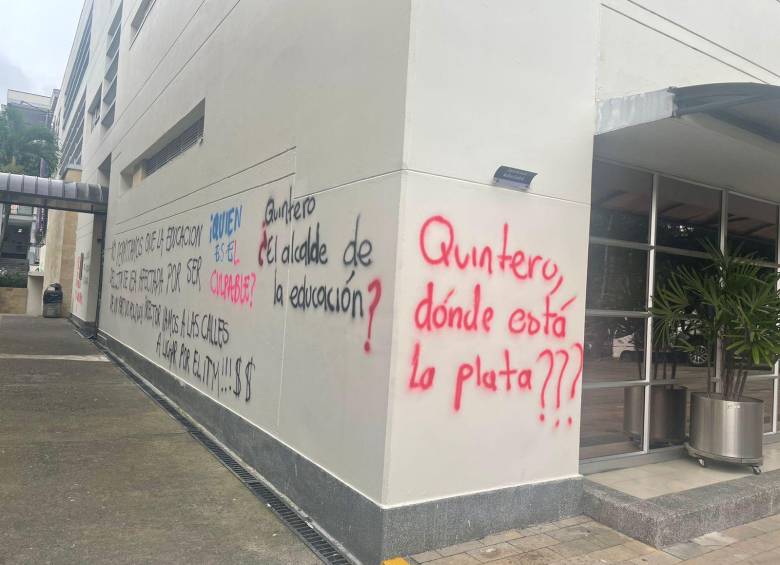 PERMITAMOS QUE LA EDUCACION
SE VEA AFECTADA POR SER
VAMOS A LAS CALLES
A LUCHAR POR EL ITM!!! $$
¡QUIEN
ES EL
CULPABLE?
Quintero
¿El alcalde de
la educación?
Quintero,
dónde está
La plata???